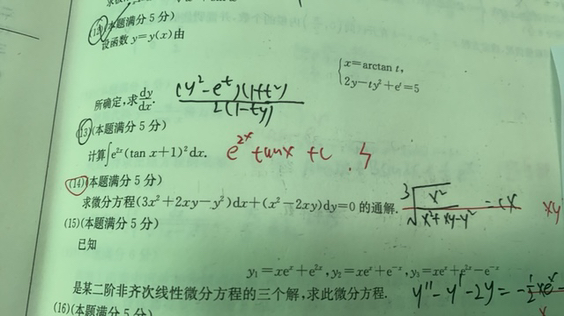 (12)(本题满分 5 分)
设函数 y=y(x)由
{x=arctan t,
2y-ty²+eᵗ=5
所确定,求dy/dx. (y²-eᵗ)(1+t²)/2(1-ty)
(13)(本题满分 5 分)
计算∫e²ˣ(tan x+1)²dx. e²ˣtanx+c
(14)(本题满分 5 分)
求微分方程(3x²+2xy-y²)dx+(x²-2xy)dy=0 的通解. xy
(15)(本题满分 5 分)
已知
y₁=xeˣ+e²ˣ,y₂=xeˣ+e⁻ˣ,y₃=xeˣ+e²ˣ-e⁻ˣ
是某二阶非齐次线性微分方程的三个解,求此微分方程. y''-y'-2y=
(16)(本题满分 5 分)